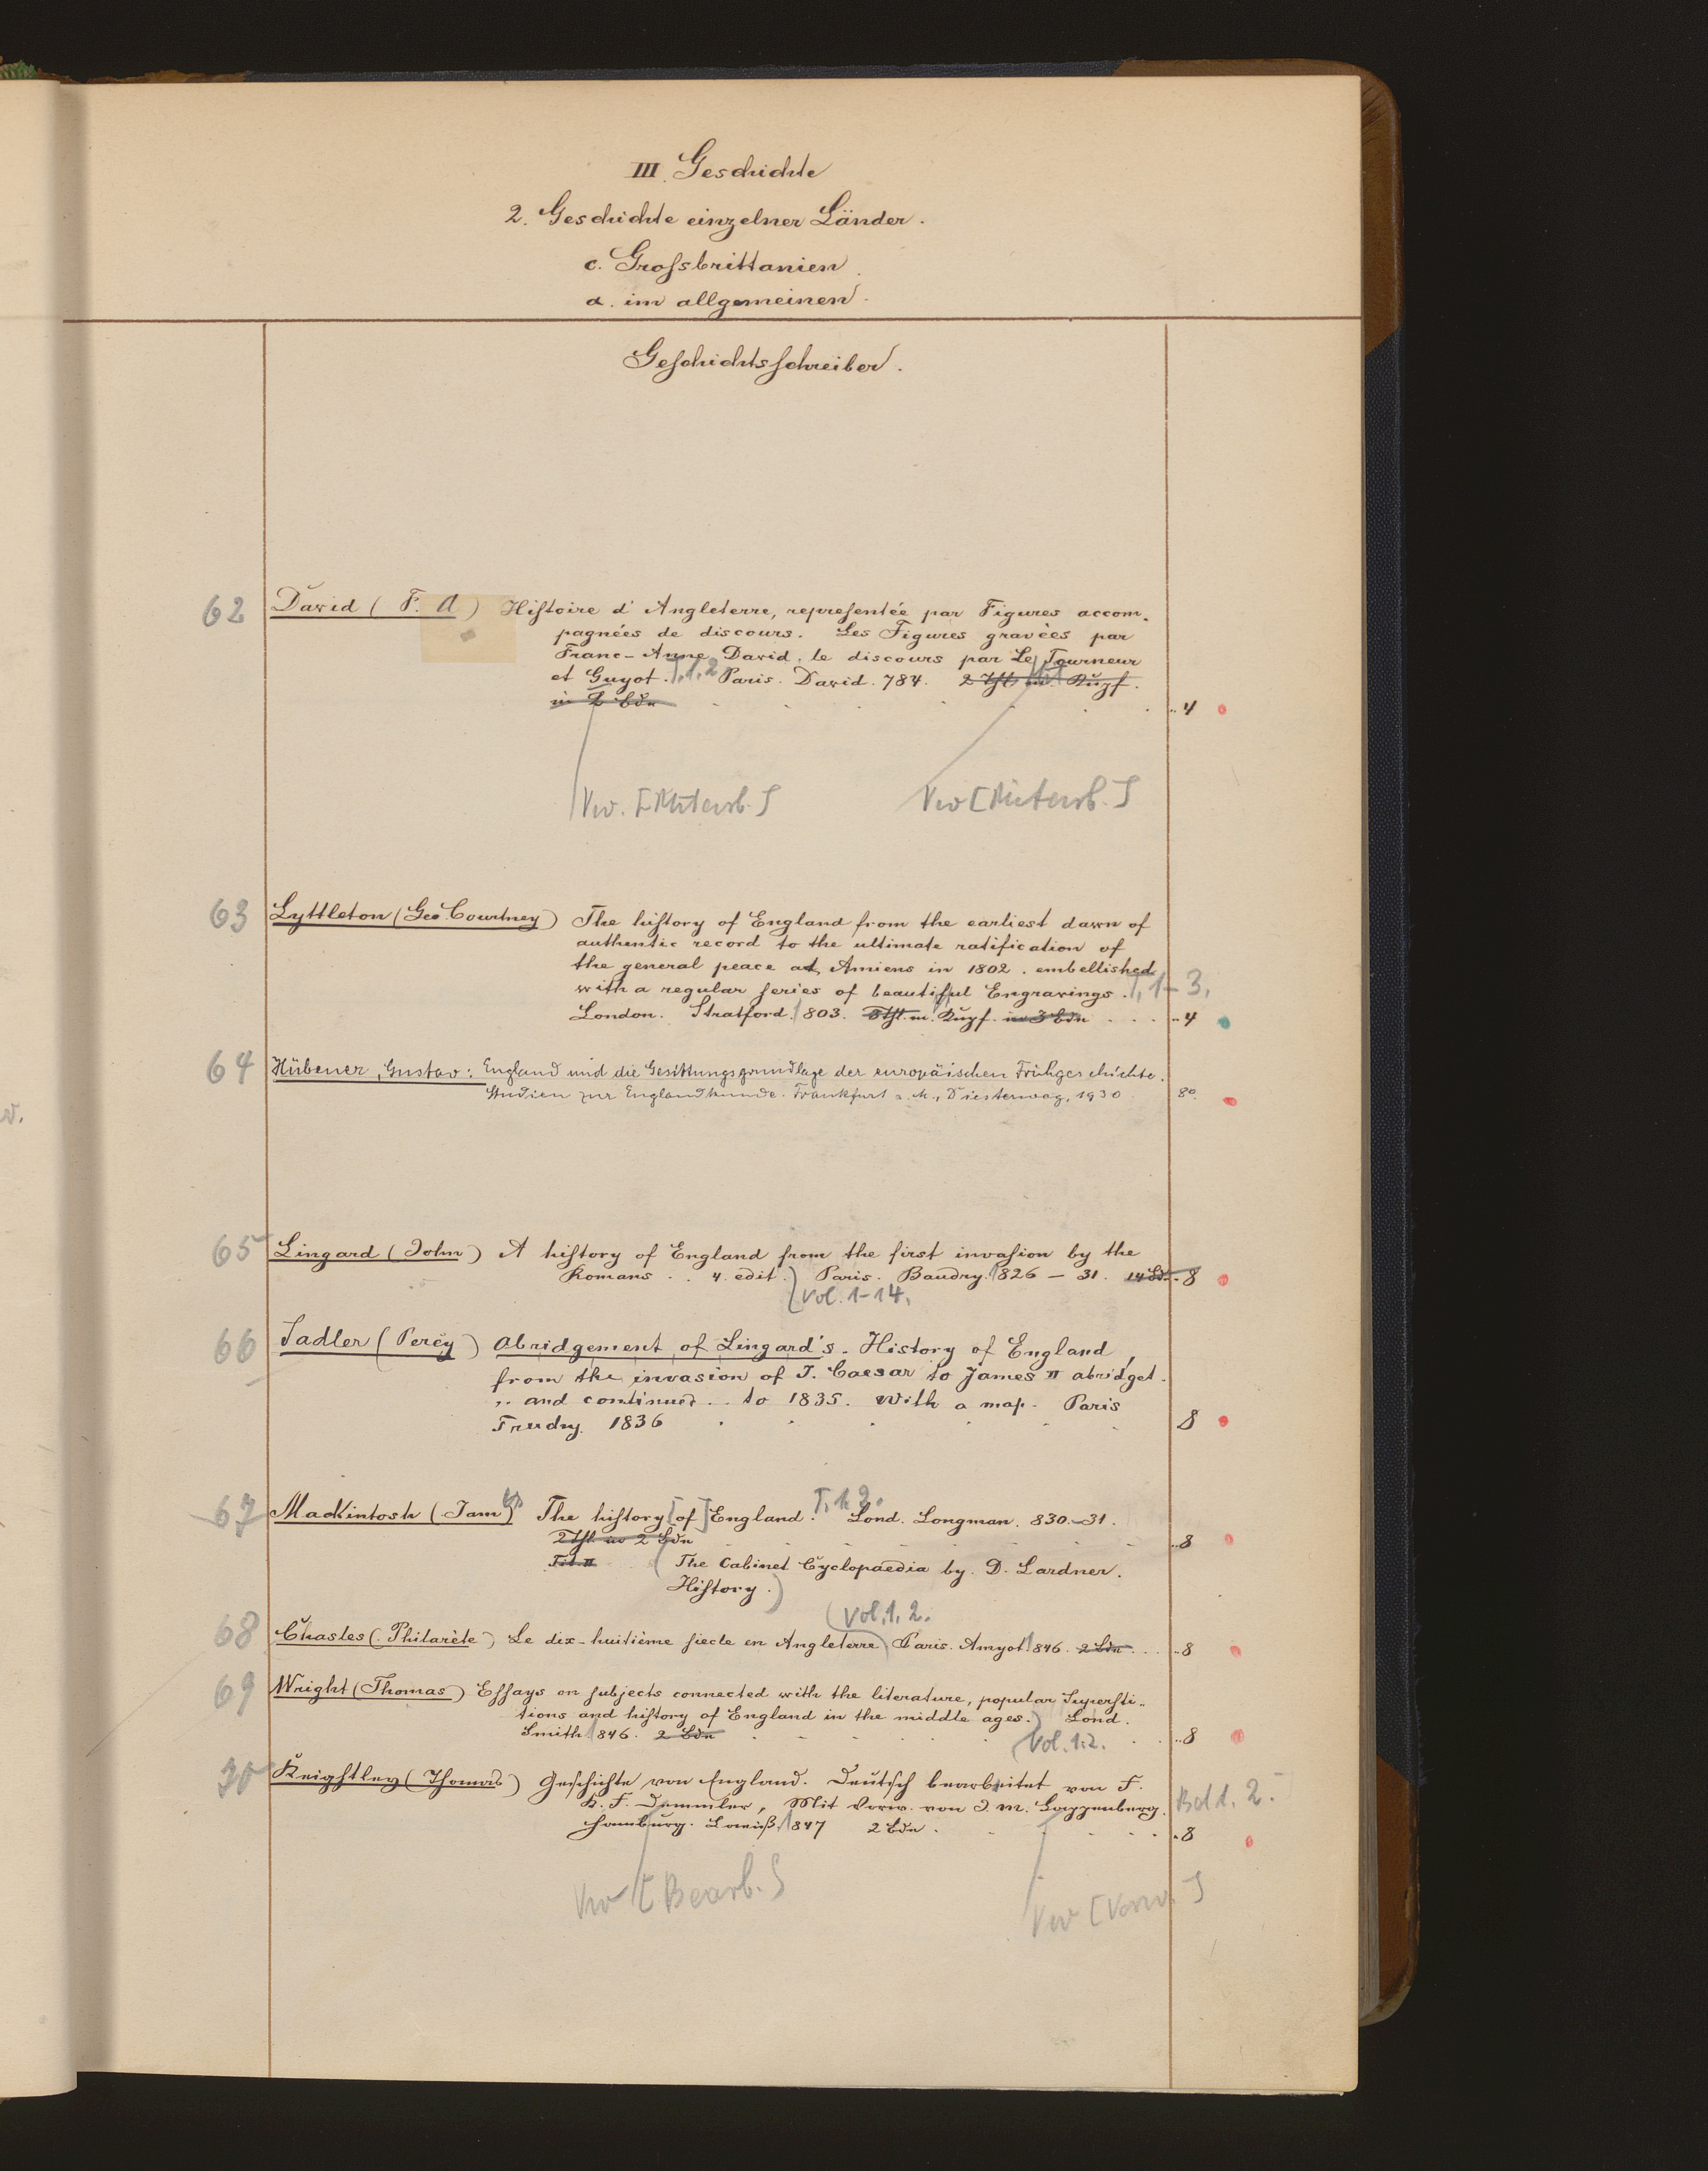 III Geschichte
2. Geschichte einzelner Länder.
c. Grossbrittanien
a. im allgemeinen.
Geschichtsschreiber.
62 David (F. A) Histoire d'Angleterre, representée par Figures accom-
pagnées de discours. Les Figures gravées par
Franc-Anne David, le discours par Le Tourneur
et Guyot. T. 1, 2 Paris. David. 784. 2 Thl. m. Kupf.
in 2 Bdn ..4
Vw. [Mitarb.] Vw [Mitarb.]
63 Lyttleton (Geo Courtney) The history of England from the earliest dawn of
authentic record to the ultimate ratification of
the general peace at Amiens in 1802. embellished
with a regular series of beautiful Engravings. T. 1-3.
London. Stratford. 803. 3 Thl. m. Kupf. in 3 Bdn ..4
64 Hübener, Gustav: England und die Gesittungsgrundlage der europäischen Frühgeschichte.
Studien zur Englandkunde. Frankfurt a. M., Diesterweg, 1930 8°.
65 Lingard (John) A history of England from the first invasion by the
Romans .. 4. edit. Paris. Baudry. 826 – 31. 14 Bd. ..8
Vol. 1-14.
66 Sadler (Percy) Abridgement of Lingard's. History of England,
from the invasion of J. Caesar to James II abridget.
.. and continued .. to 1835. With a map. Paris
Truchy. 1836 8
67 Mackintosh (Jam) The history [of] England. T. 1. 2. Lond. Longman. 830.-31.
2 Thl. in 2 Bdn ..8
Tit. II (The Cabinet Cyclopaedia by. D. Lardner.
History.)
(Vol. 1, 2.
68 Chasles (Philarète) Le dix-huitième siecle en Angleterre Paris. Amyot. 846. 2 Bdn ..8
69 Wright (Thomas) Essays on subjects connected with the literature, popular Supersti-
tions and history of England in the middle ages.) Lond.
Smith. 846. 2 Bdn (Vol. 1. 2. ..8
70 Keightley (Thomas) Geschichte von England. Deutsch bearbeitet von F.
K. F. Demmler, Mit Vorw. von J. M. Lappenberg. Bd 1. 2.
Hamburg. 1847 2 Bdn .8
Vw [Bearb.] Vw [Vorw.]